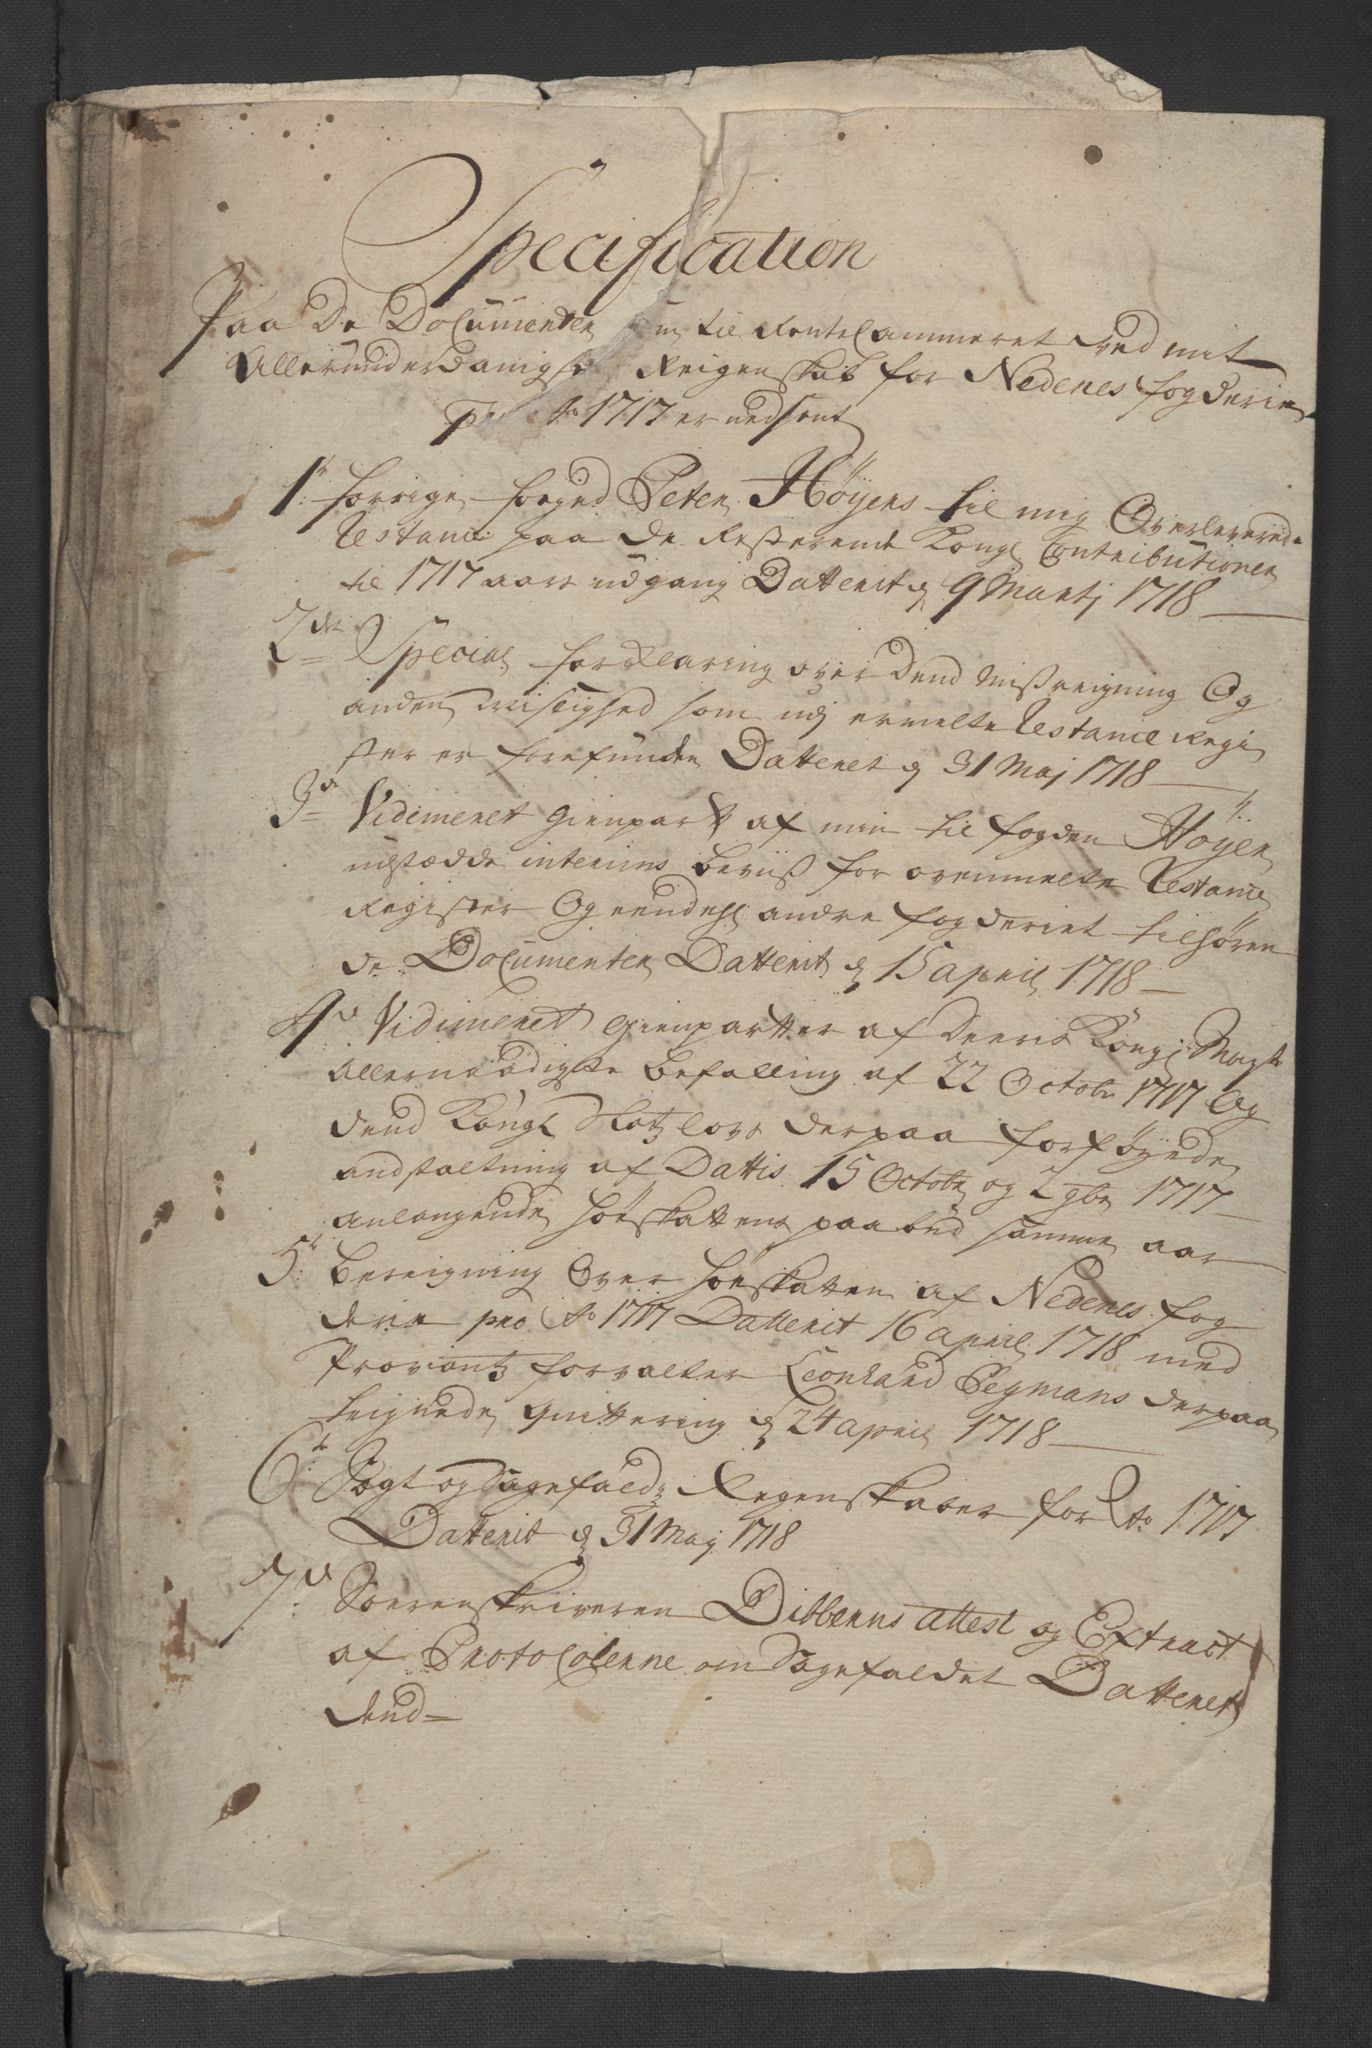 Specification
Paa De Documenter som til RenteCammeret ved mit
Allerunderdanigste Reigenskab for Nedenes fogderie
Pro Ao 1717 er nedsent
1t forrige foeged Peter Höyers til mig Overleverede
Restance paa de Resterende Kongl Contributioner
til 1717 aars udgang Datterit d 9 Martj 1718
2det Special forklaring over dend Misreigning Og
anden vrigtighed som udj ermelte Restance Regi
ster er forefunden Datteret d 31 Maj 1718
3de Vidimeret Gienpart af min til fogden Höyer
udstædde interims beviis for ovenmelte Restance
Register Og eendeel andre fogderiet tilhören
de Documenter Datterit d 15 april 1718
4de Vidimeret Gienparter af Deris Kongl Mayts
Allernaadigste befalling af 22 Octobr 1717 Og
dend Kongl Slotzlovs derpaa forföyede
andstaltning af Dattis 15 Octobr og 2 9br 1717
anlangende höeskattens paabud samme aar
5t Bereigning Over höeskatten af Nedenes fog
derie pro Ao 1717 Datterit 16 april 1718 med
Proviantz forvalter Leonhard Segmans derpaa
teignede quittering d 24 april 1718
6t Sigt og Sagefaldz Regenskaber for Ao 1717
Datterit d 31 Maj 1718
7de Sorenskriveren Dibberns attest og Extract
af Protocolerne om Sagefaldet Datteret
dend